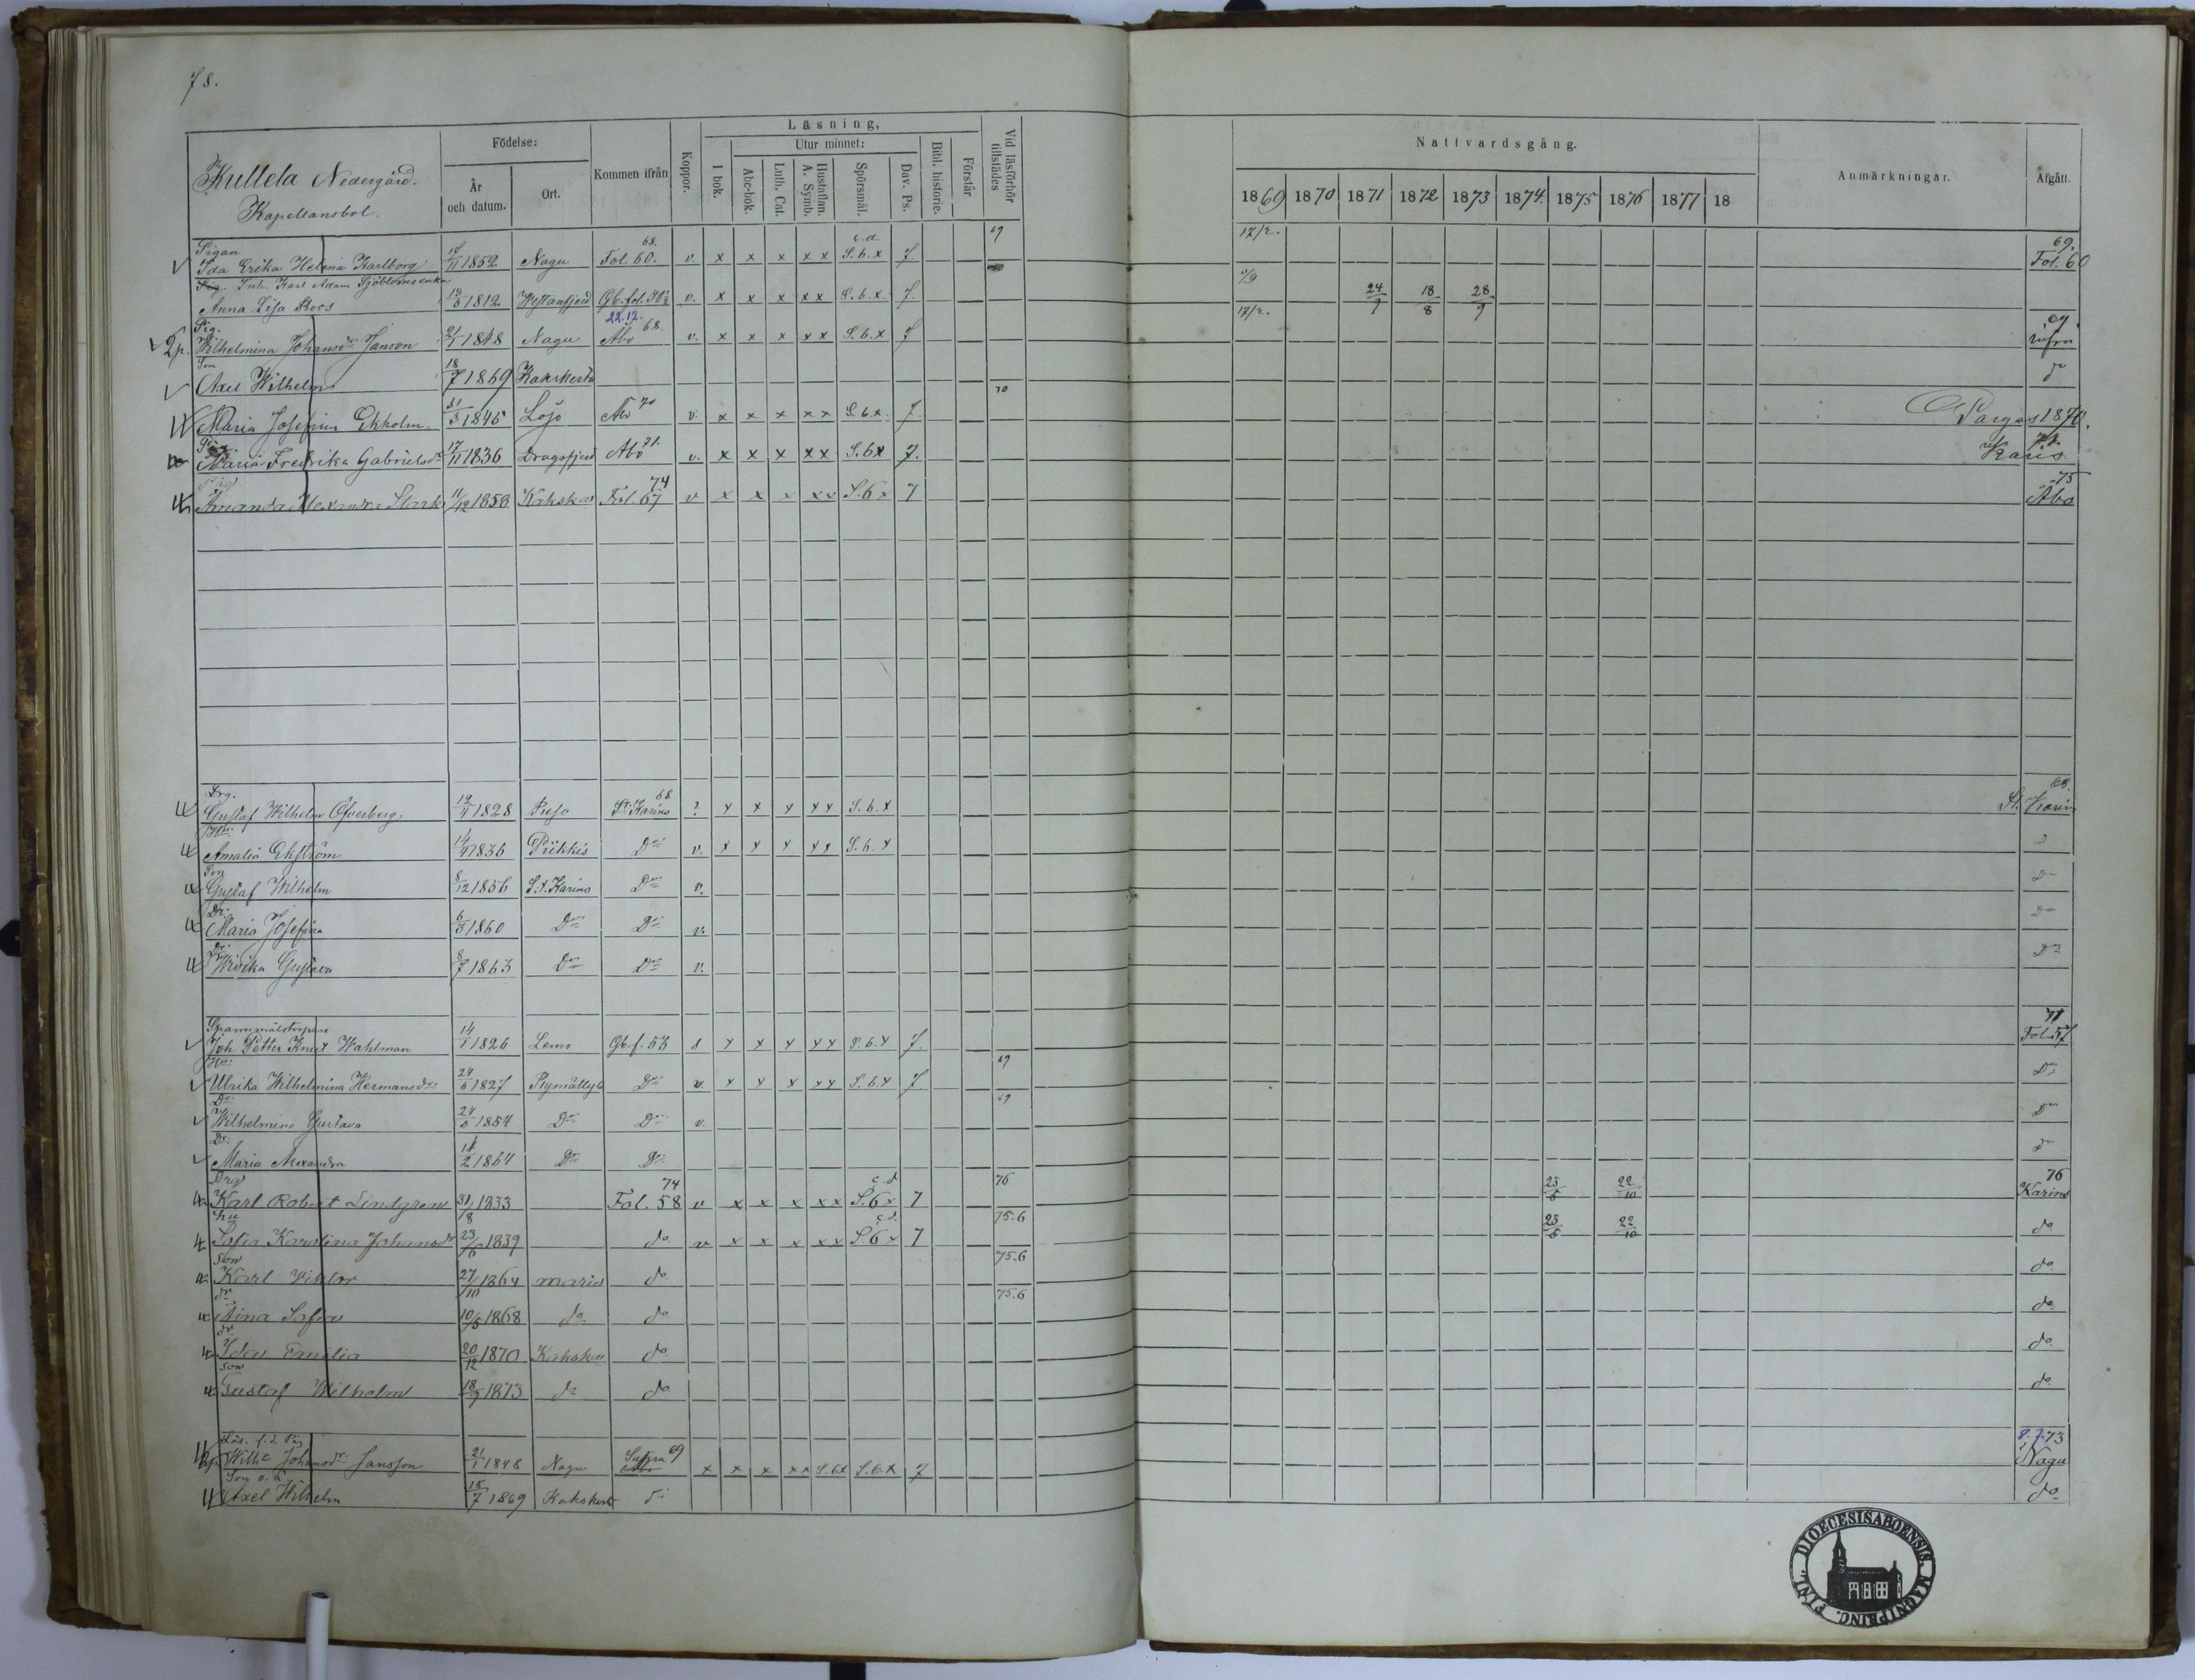 78.
Kullela Nedergård.
Kapellansbol.
Födelse:
År och datum.
Ort.
Kommen ifrån
Koppor.
Läsning,
I bok.
Utur minnet:
Abc-bok.
Luth. Cat.
Hustaflan. A. Symb.
Spörsmål.
Dav. Ps.
Bibl. historie.
Förstår
Vid läsförhör tillstädes
Nattvardsgång.
1869 1870 1871 1872 1873 1874 1875 1876 1877 18
Anmärkningar.
Afgått.
Pigan
Ida Erika Helena Karlborg 1852 Nagu 68. Fol. 60. v. x x x x x c.d. S.b.x 7 69 17/2. 69. Fol. 60
Inh. Karl Adam Sjöbloms enka
Anna Lisa Roos 1812 Westanfjerd Gb. fol. v. x x x x x S.b.x. 7. 24/9 18/8 28/9
Pig. 22.12.
2p. Wilhelmina Johansdr Janson 21/1 1848 Nagu Åbo 68. v. x x x x x S.b.x 7 17/2. 69. infra
Son
Axel Wilhelm 18/7 1869 Kakskerta do
Maria Josefina Ekholm 31/3 1845 Lojo Åbo 70 v. x x x x x S.b.x. 7. 70 Pargas 1870.
Maria Fredrika Gabrielsdr 17/11 1836 Dragsfjerd Åbo 71. v. x x x x x S.bx 7. Karis
Amanda Alexandra Stark 11/12 1858 Kakska 74 Fol. 67 v x x x x x S.6x 7 75 Åbo
Drg.
Gustaf Wilhelm Öfverberg 1828 68 St Karins ? x x x x x S.b.x St. Karins
Hu:
Amalia Ekström 1836 Piikkis Do v. x x x x x S.b.x
Son
Gustaf Wilhelm 8/12 1856 St. Karins Do v. Do
Dr.
Maria Josefina 1860 Do Do v. Do
Dr.
Gustava 8/7 1863 Do Do v. Do
Spannmålstorpare
Joh. Petter Knut Wahlman 1826 Lemo Gb. f. 53 x x x x x S.b.x 7. Fol. 57
Hu:
Ulrika Wilhelmina Hermansdr 1827 Rymättylä Do v. x x x x x S.b.x 7 69 Do
Dr.
Wilhelmina Gustava 1854 Do Do v. 69 Do
Dr.
Maria Alexandra 1864 Do Do do
Drg
Karl Robert Lindgren 31/8 1833 74 Fol. 58 v x x x x x c.d S.6x 7 76 23/5 22/10 76 Karins
hu
Sofia Karolina Johansdr 1839 do v x x x x x c.d. S.6x 7 75-6 23/5 22/10 do
Son
Karl Viktor 27/10 1864 maria do 75.6 do
dr
Aina Sofia 10/5 1868 do do 75.6 do
dr
Ida Emilia 20/12 1870 Kakska do do
son
Gustaf Wilhelm 18/9 1873 do do do
Wilha Johansdr Jansson 21/1 1848 Nagu Supra 69 x x x x x S.6x S.6.x 7 8.7.73 Nagu
Son o.ä.
Axel Wilhelm 1869 Kakskerta do do
DIOECESIS ABOENSIS. MAGNI PRINC. FINL.